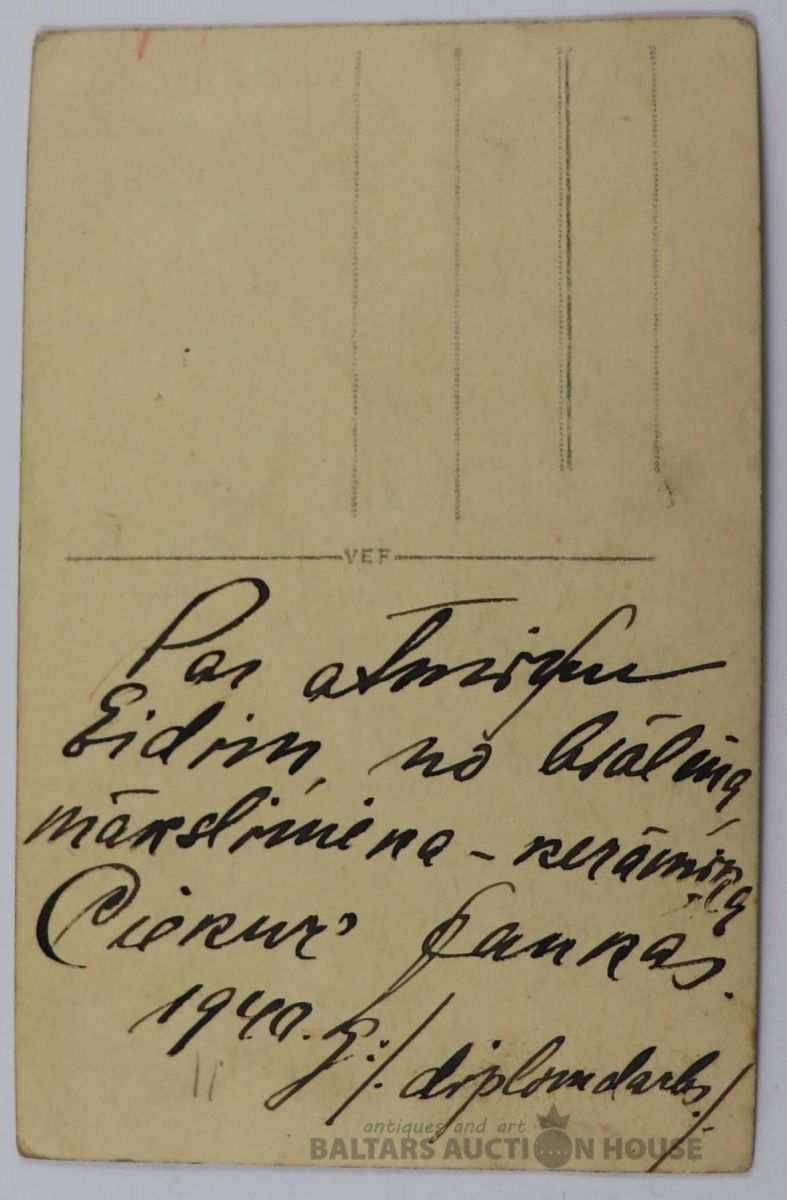 VEF
Par atmiņu
Eidim, no brāļina,
mākslinieka - keramiķa
Ciekur Jankas.
1940. g. /. diplomdarbs ./
antiques and art
BALTARS AUCTION HOUSE